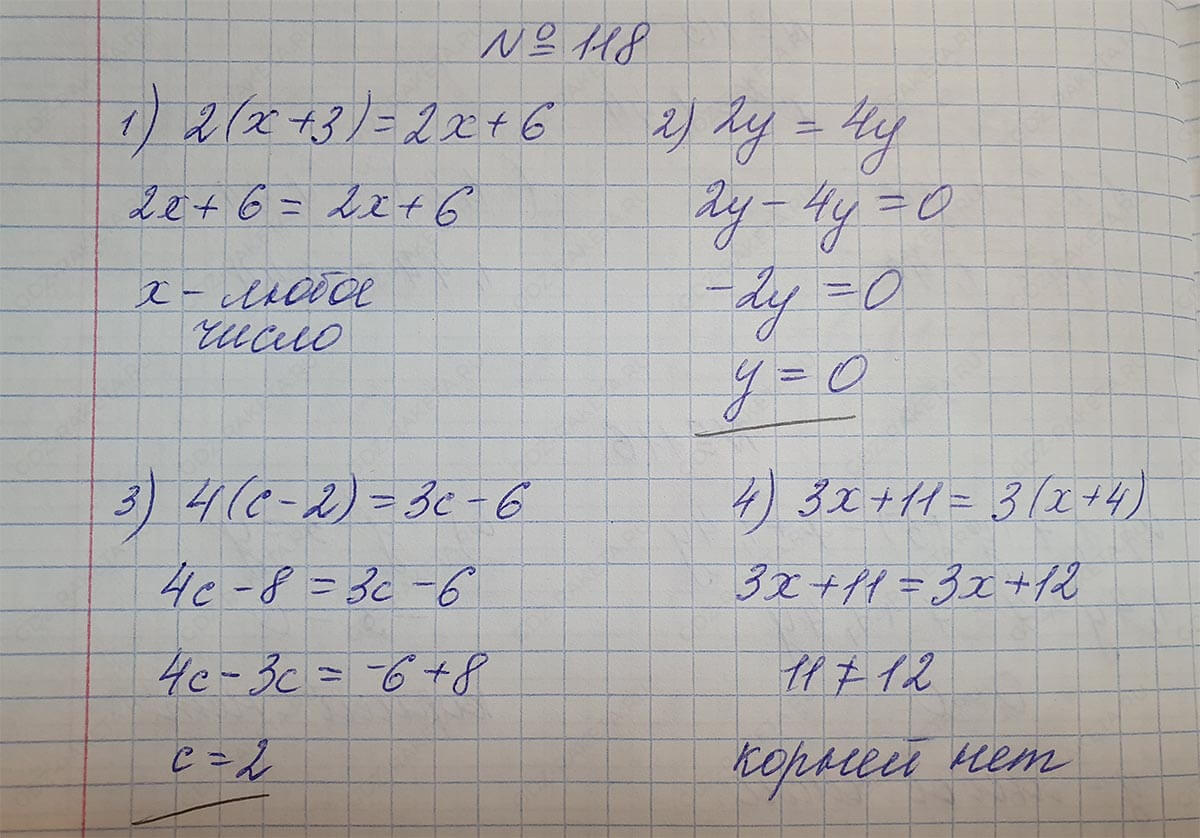 № 118
1) 2(x+3)=2x+6
2x+6=2x+6
x - любое
число
2) 2y=4y
2y-4y=0
-2y=0
y=0
3) 4(c-2)=3c-6
4c-8=3c-6
4c-3c=-6+8
c=2
4) 3x+11=3(x+4)
3x+11=3x+12
11≠12
корней нет